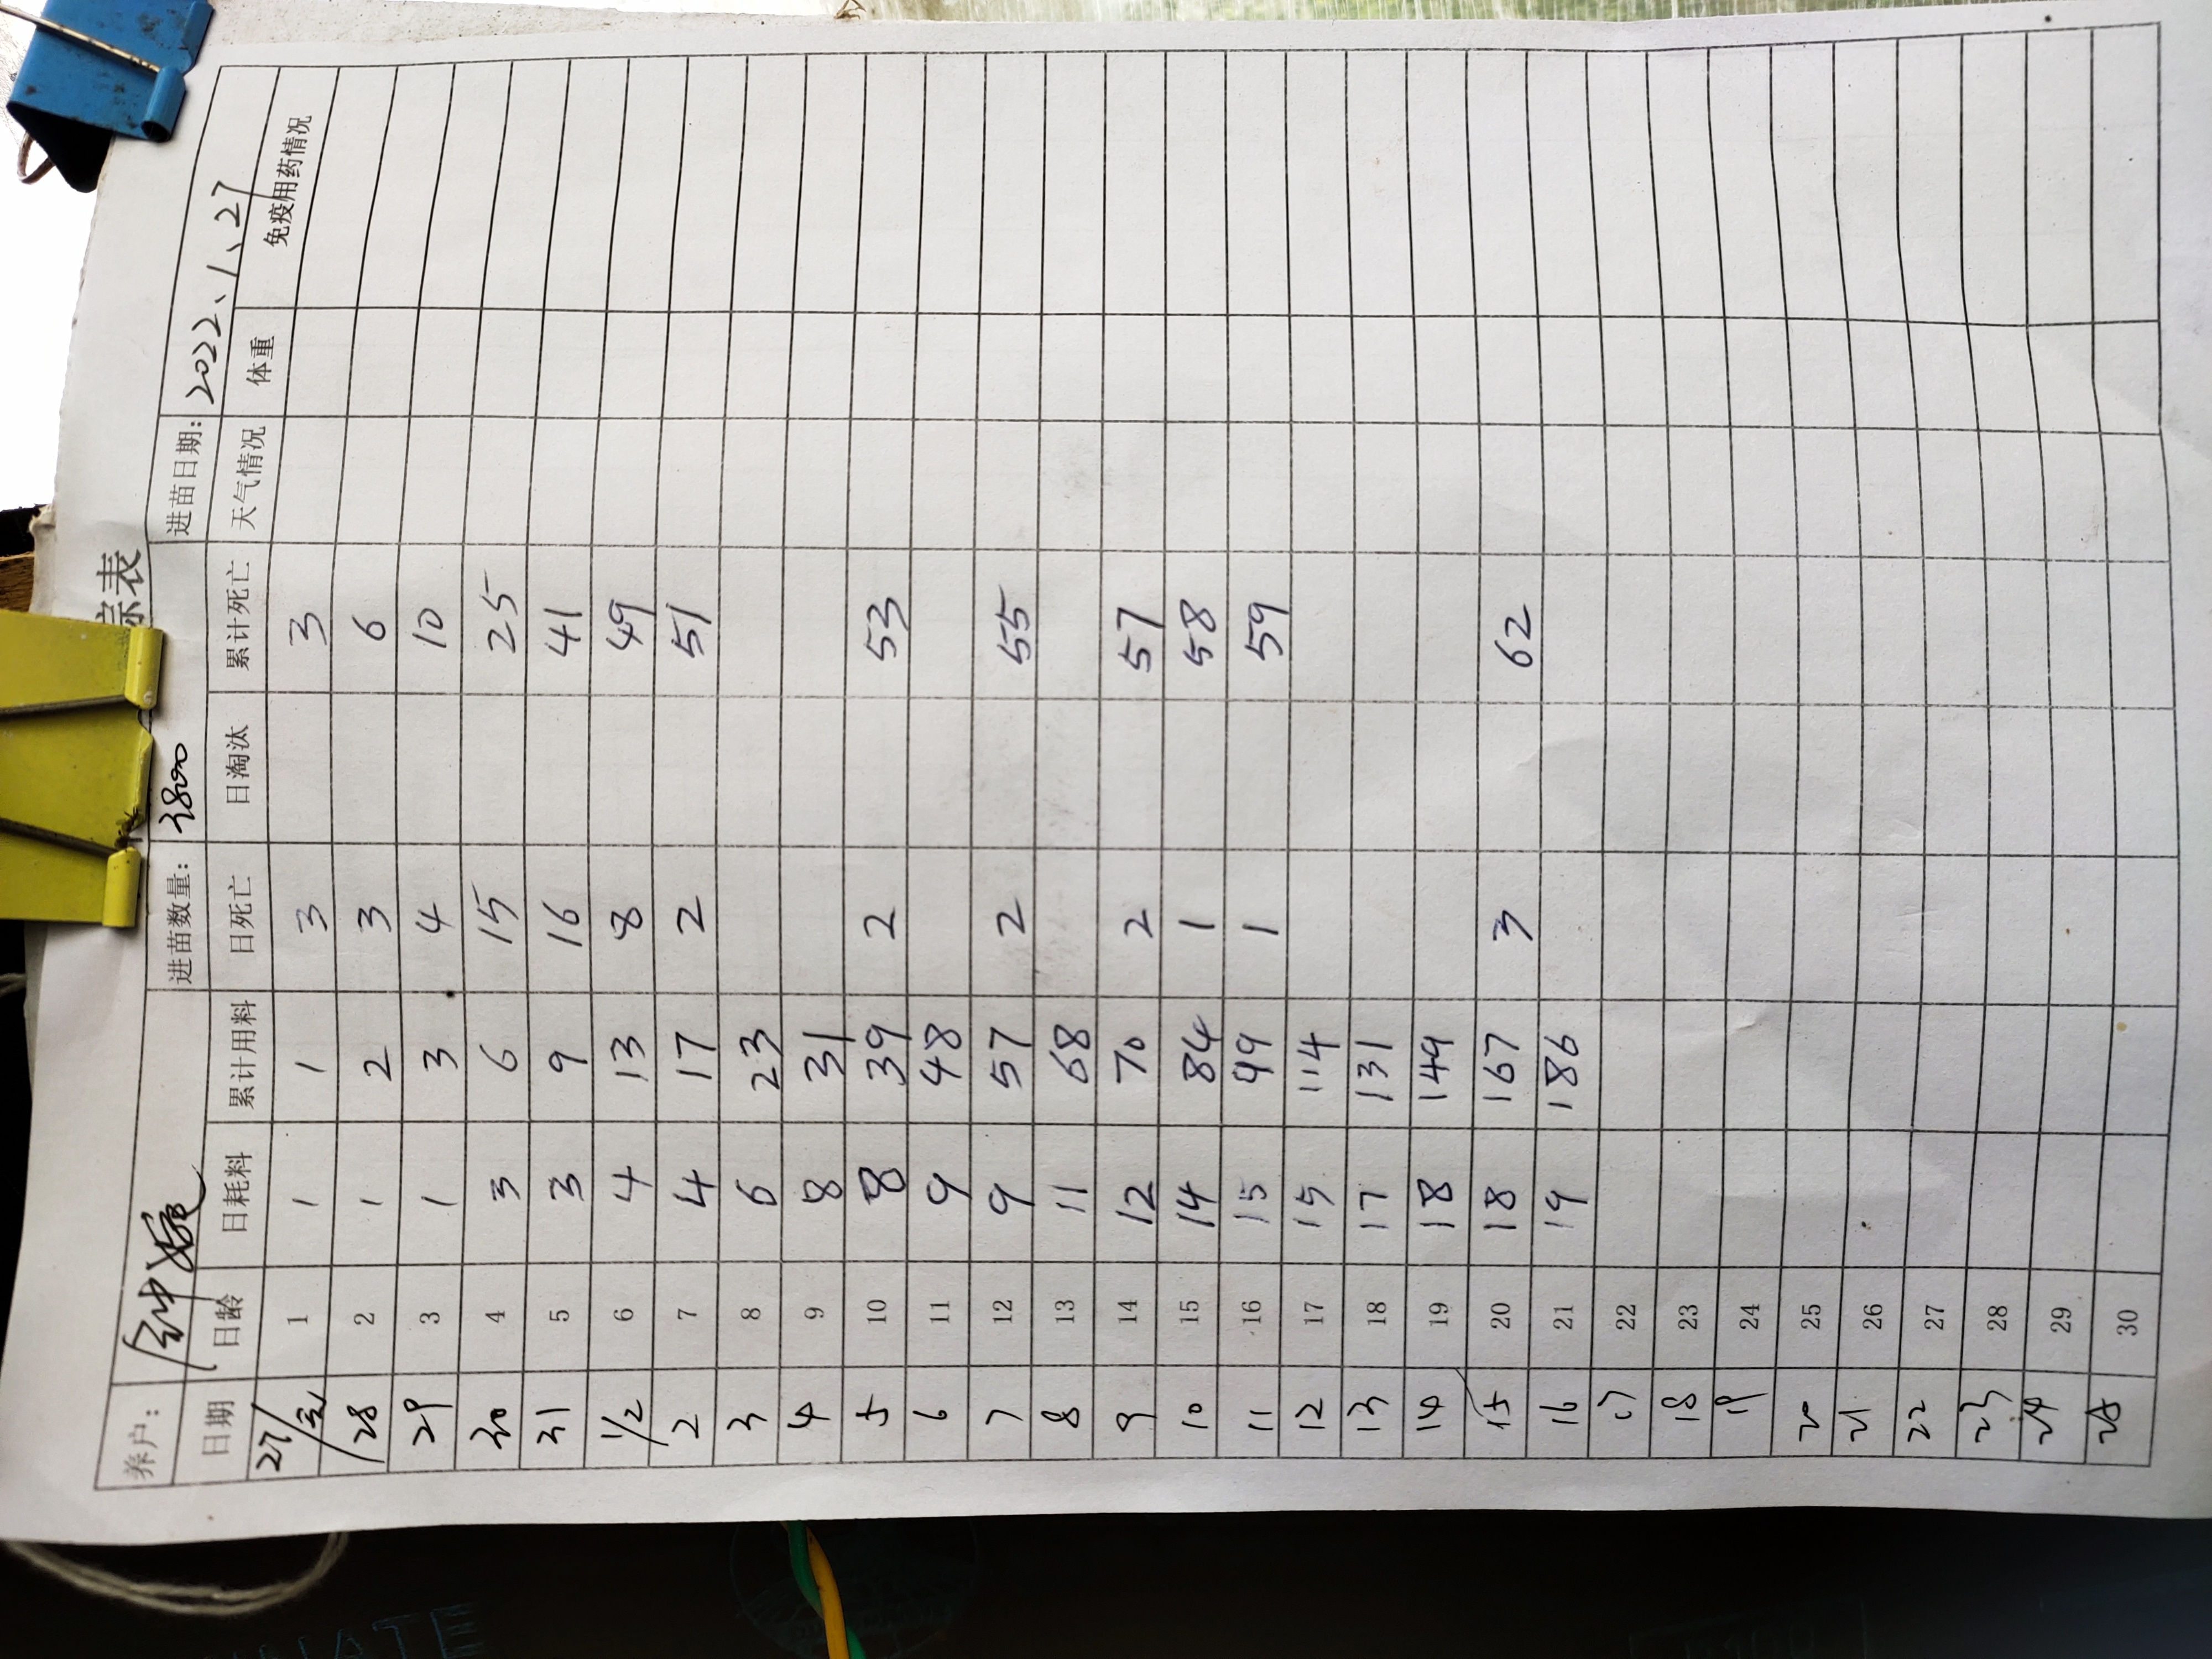 踪表
养户： 进苗数量： 3800 进苗日期： 2022、1、27
日期 日龄 日耗料 累计用料 日死亡 日淘汰 累计死亡 天气情况 体重 免疫用药情况
27/ 1 1 1 3 3
28 2 1 2 3 6
29 3 1 3 4 10
30 4 3 6 15 25
31 5 3 9 16 41
1/2 6 4 13 8 49
2 7 4 17 2 51
3 8 6 23
4 9 8 31
5 10 8 39 2 53
6 11 9 48
7 12 9 57 2 55
8 13 11 68
9 14 12 70 2 57
10 15 14 84 1 58
11 16 15 99 1 59
12 17 15 114
13 18 17 131
14 19 18 149
15 20 18 167 3 62
16 21 19 186
17 22
18 23
19 24
20 25
21 26
22 27
23 28
24 29
25 30